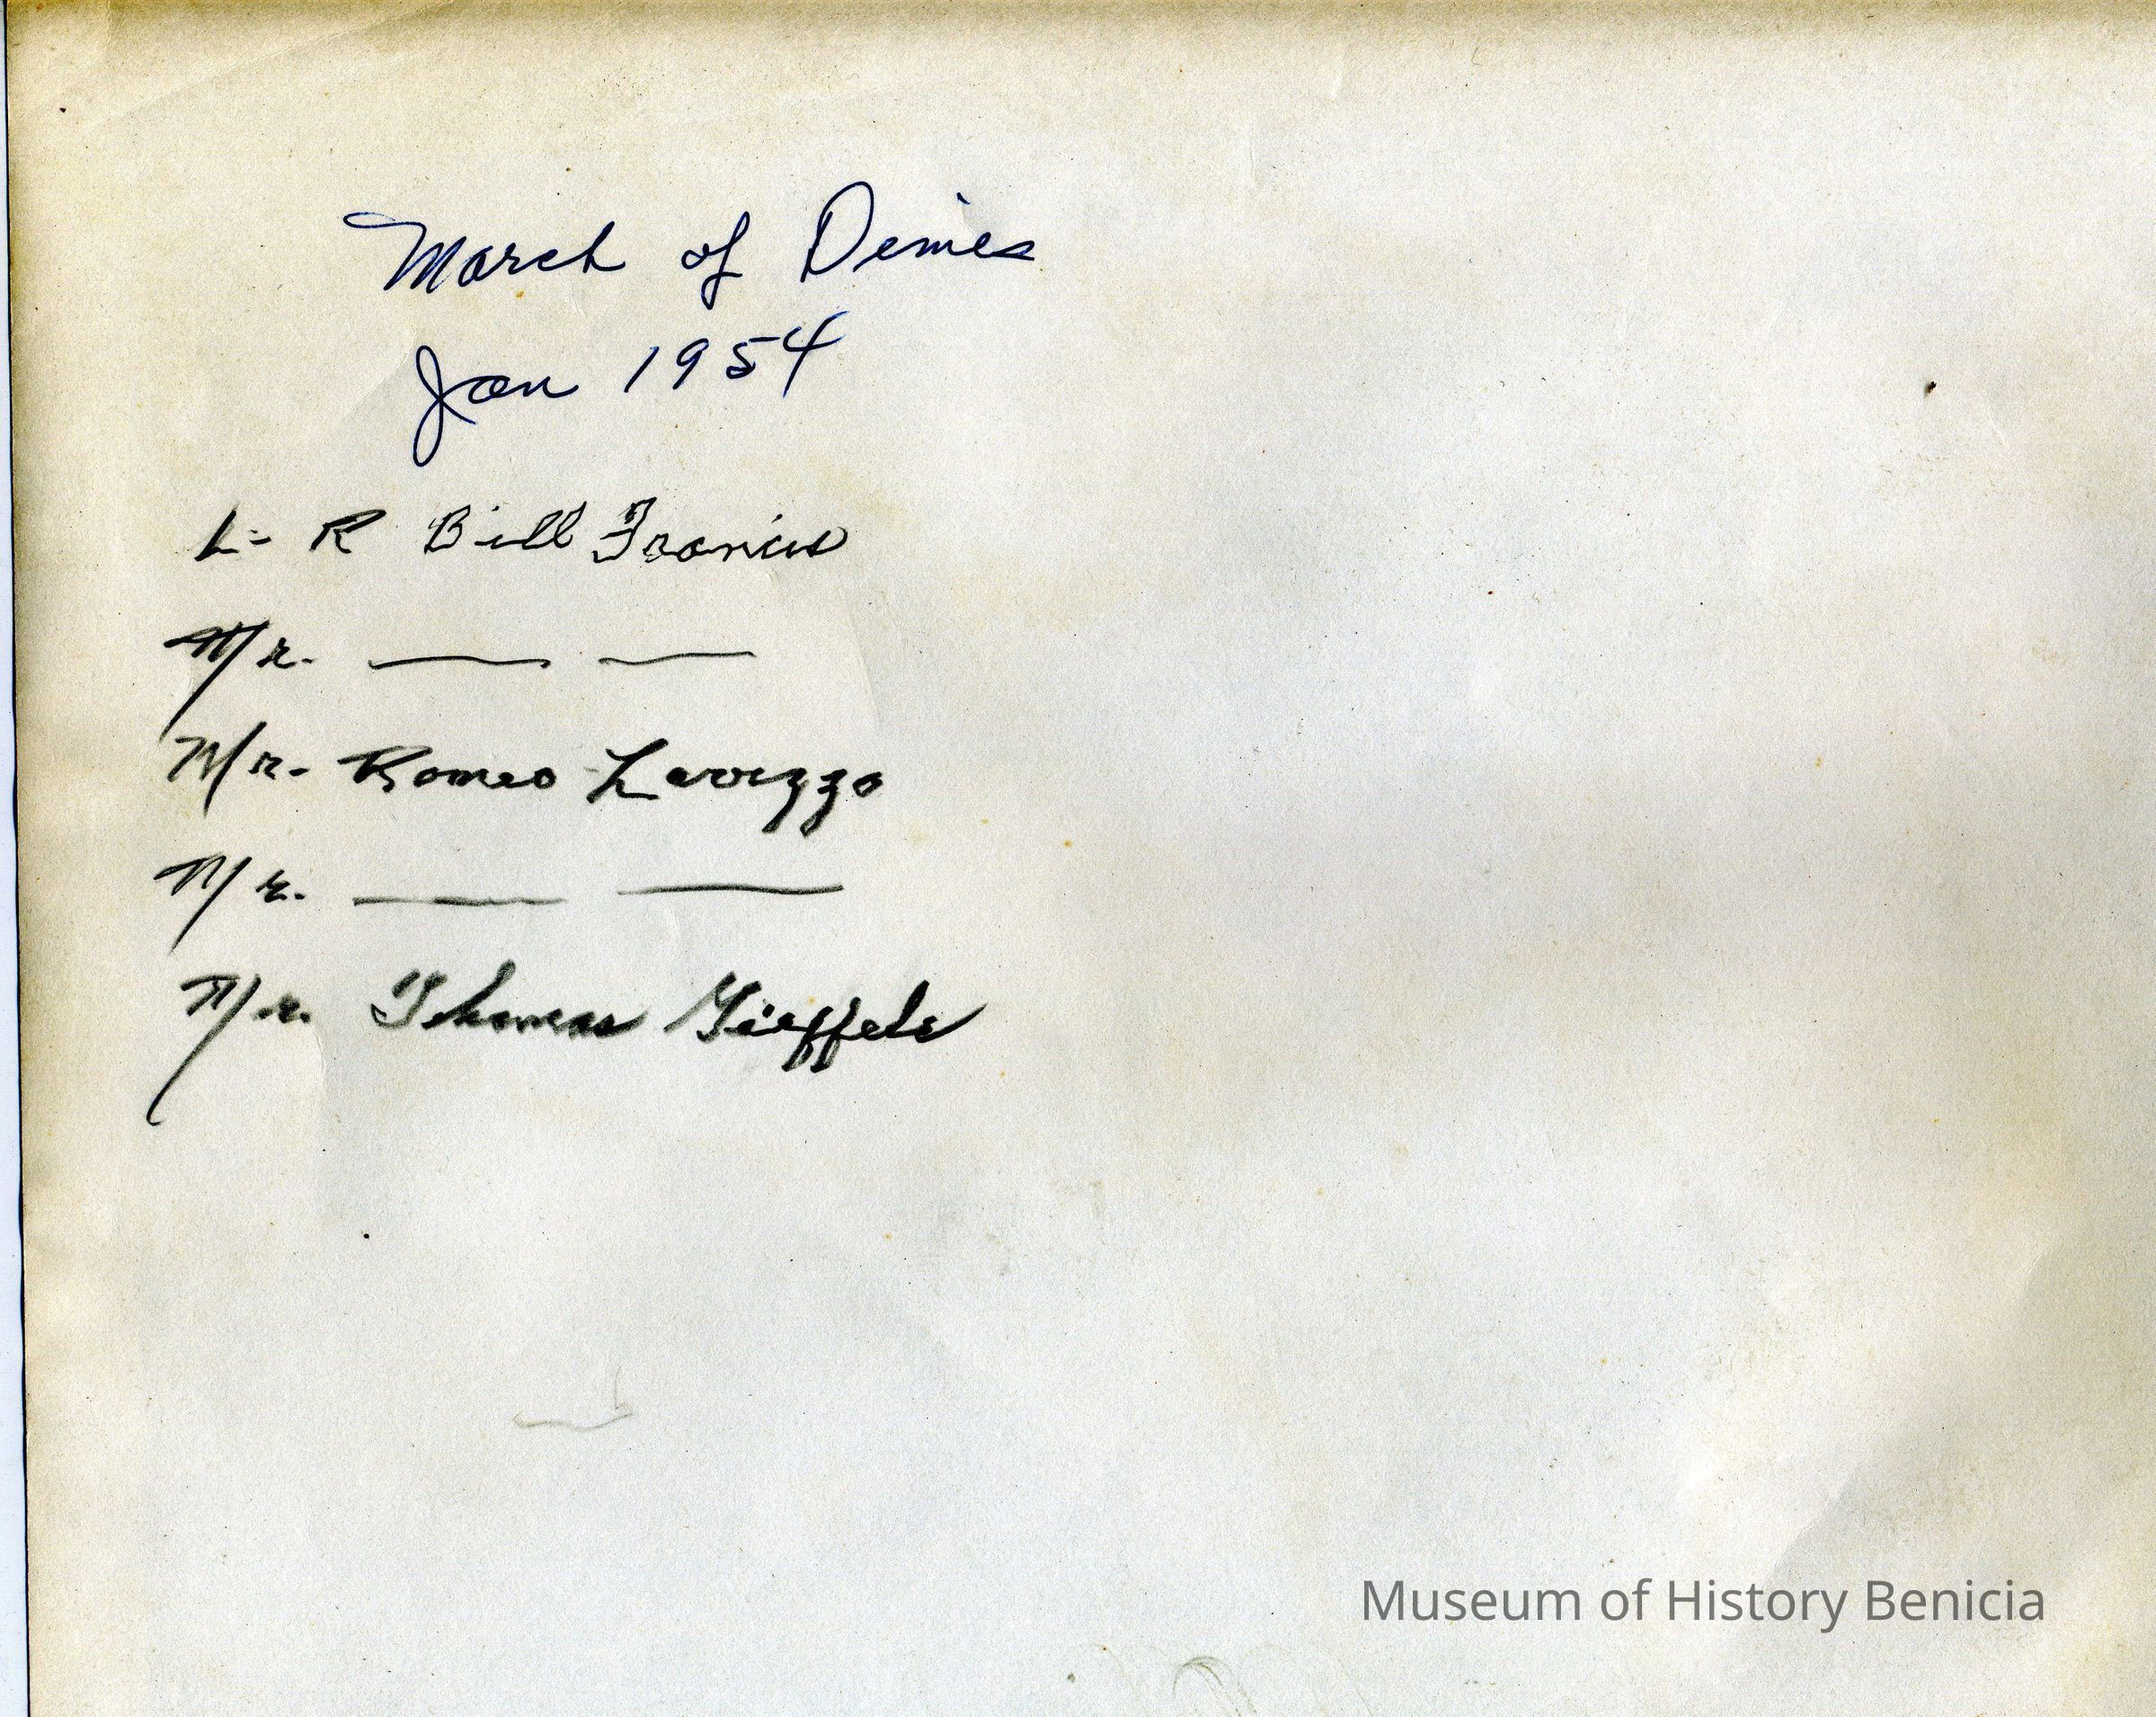 March of Dimes
Jan 1954
L- R Bill Francis
Mr. — —
Mr. Romeo Lavezzo
Mr. — —
Mr. Thomas
Museum of History Benicia